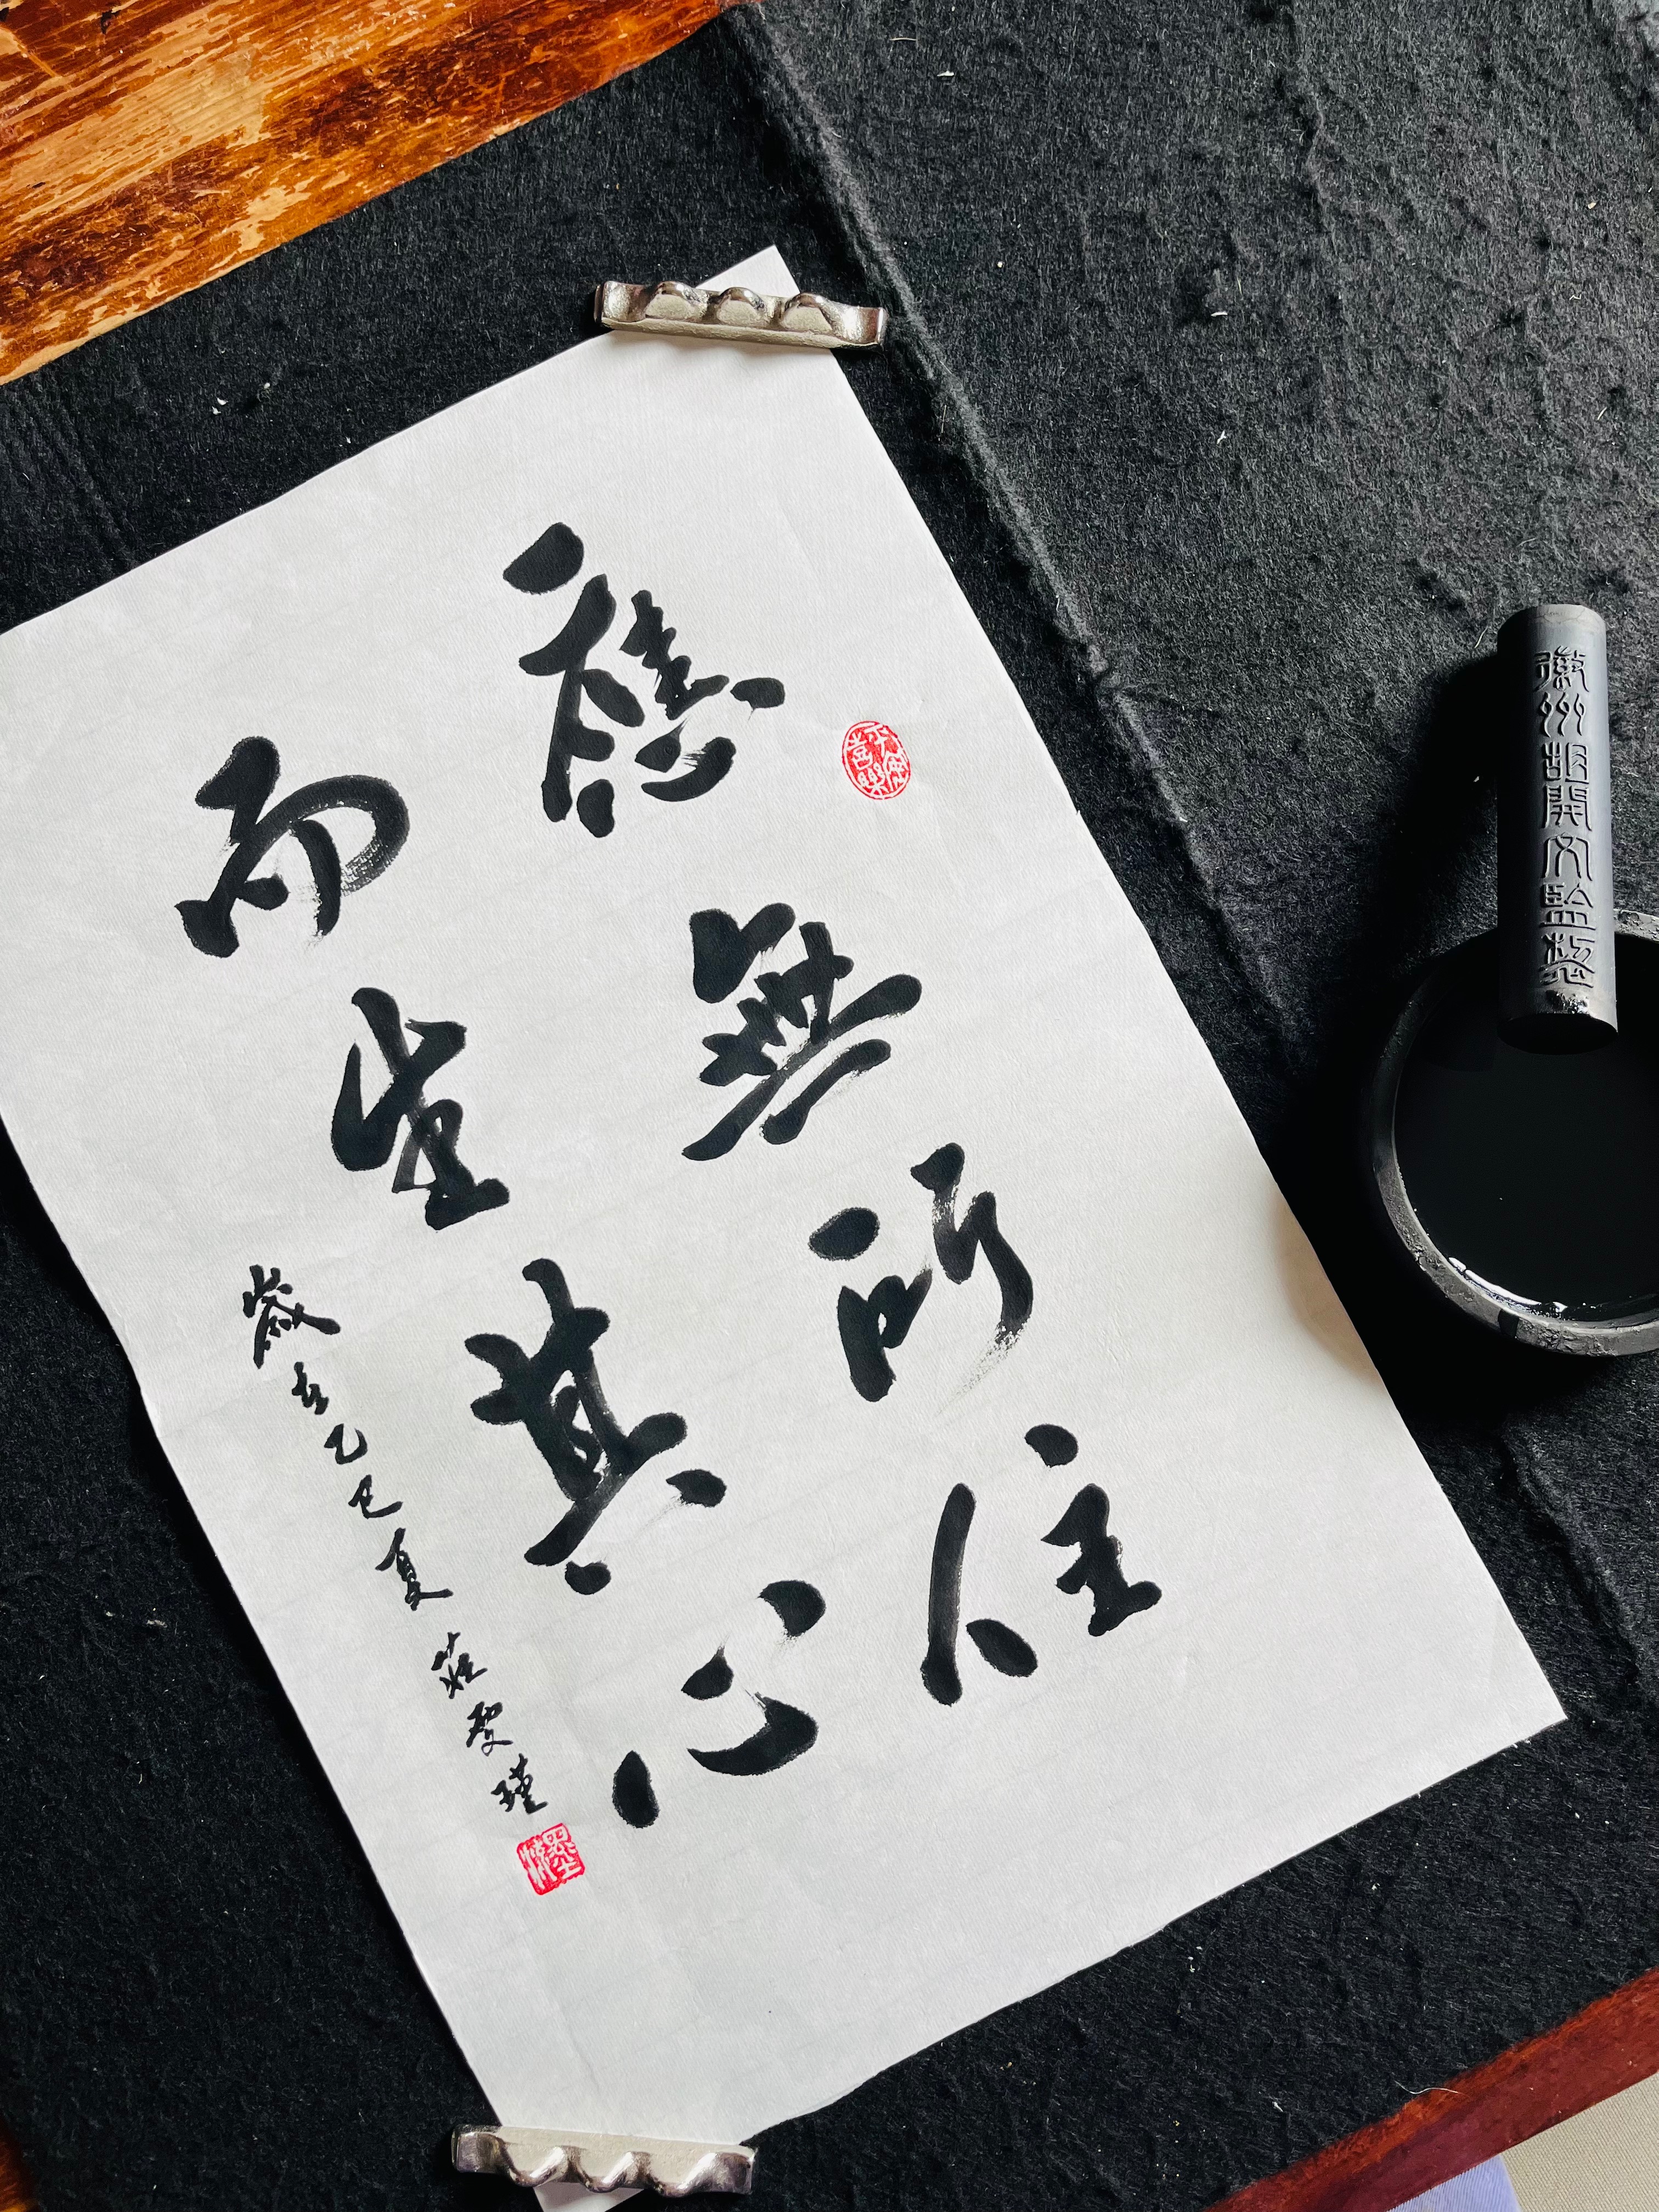 應無所住
而生其心
歲在乙巳夏 莊聖瑾
平安喜樂
徽州胡開文監製